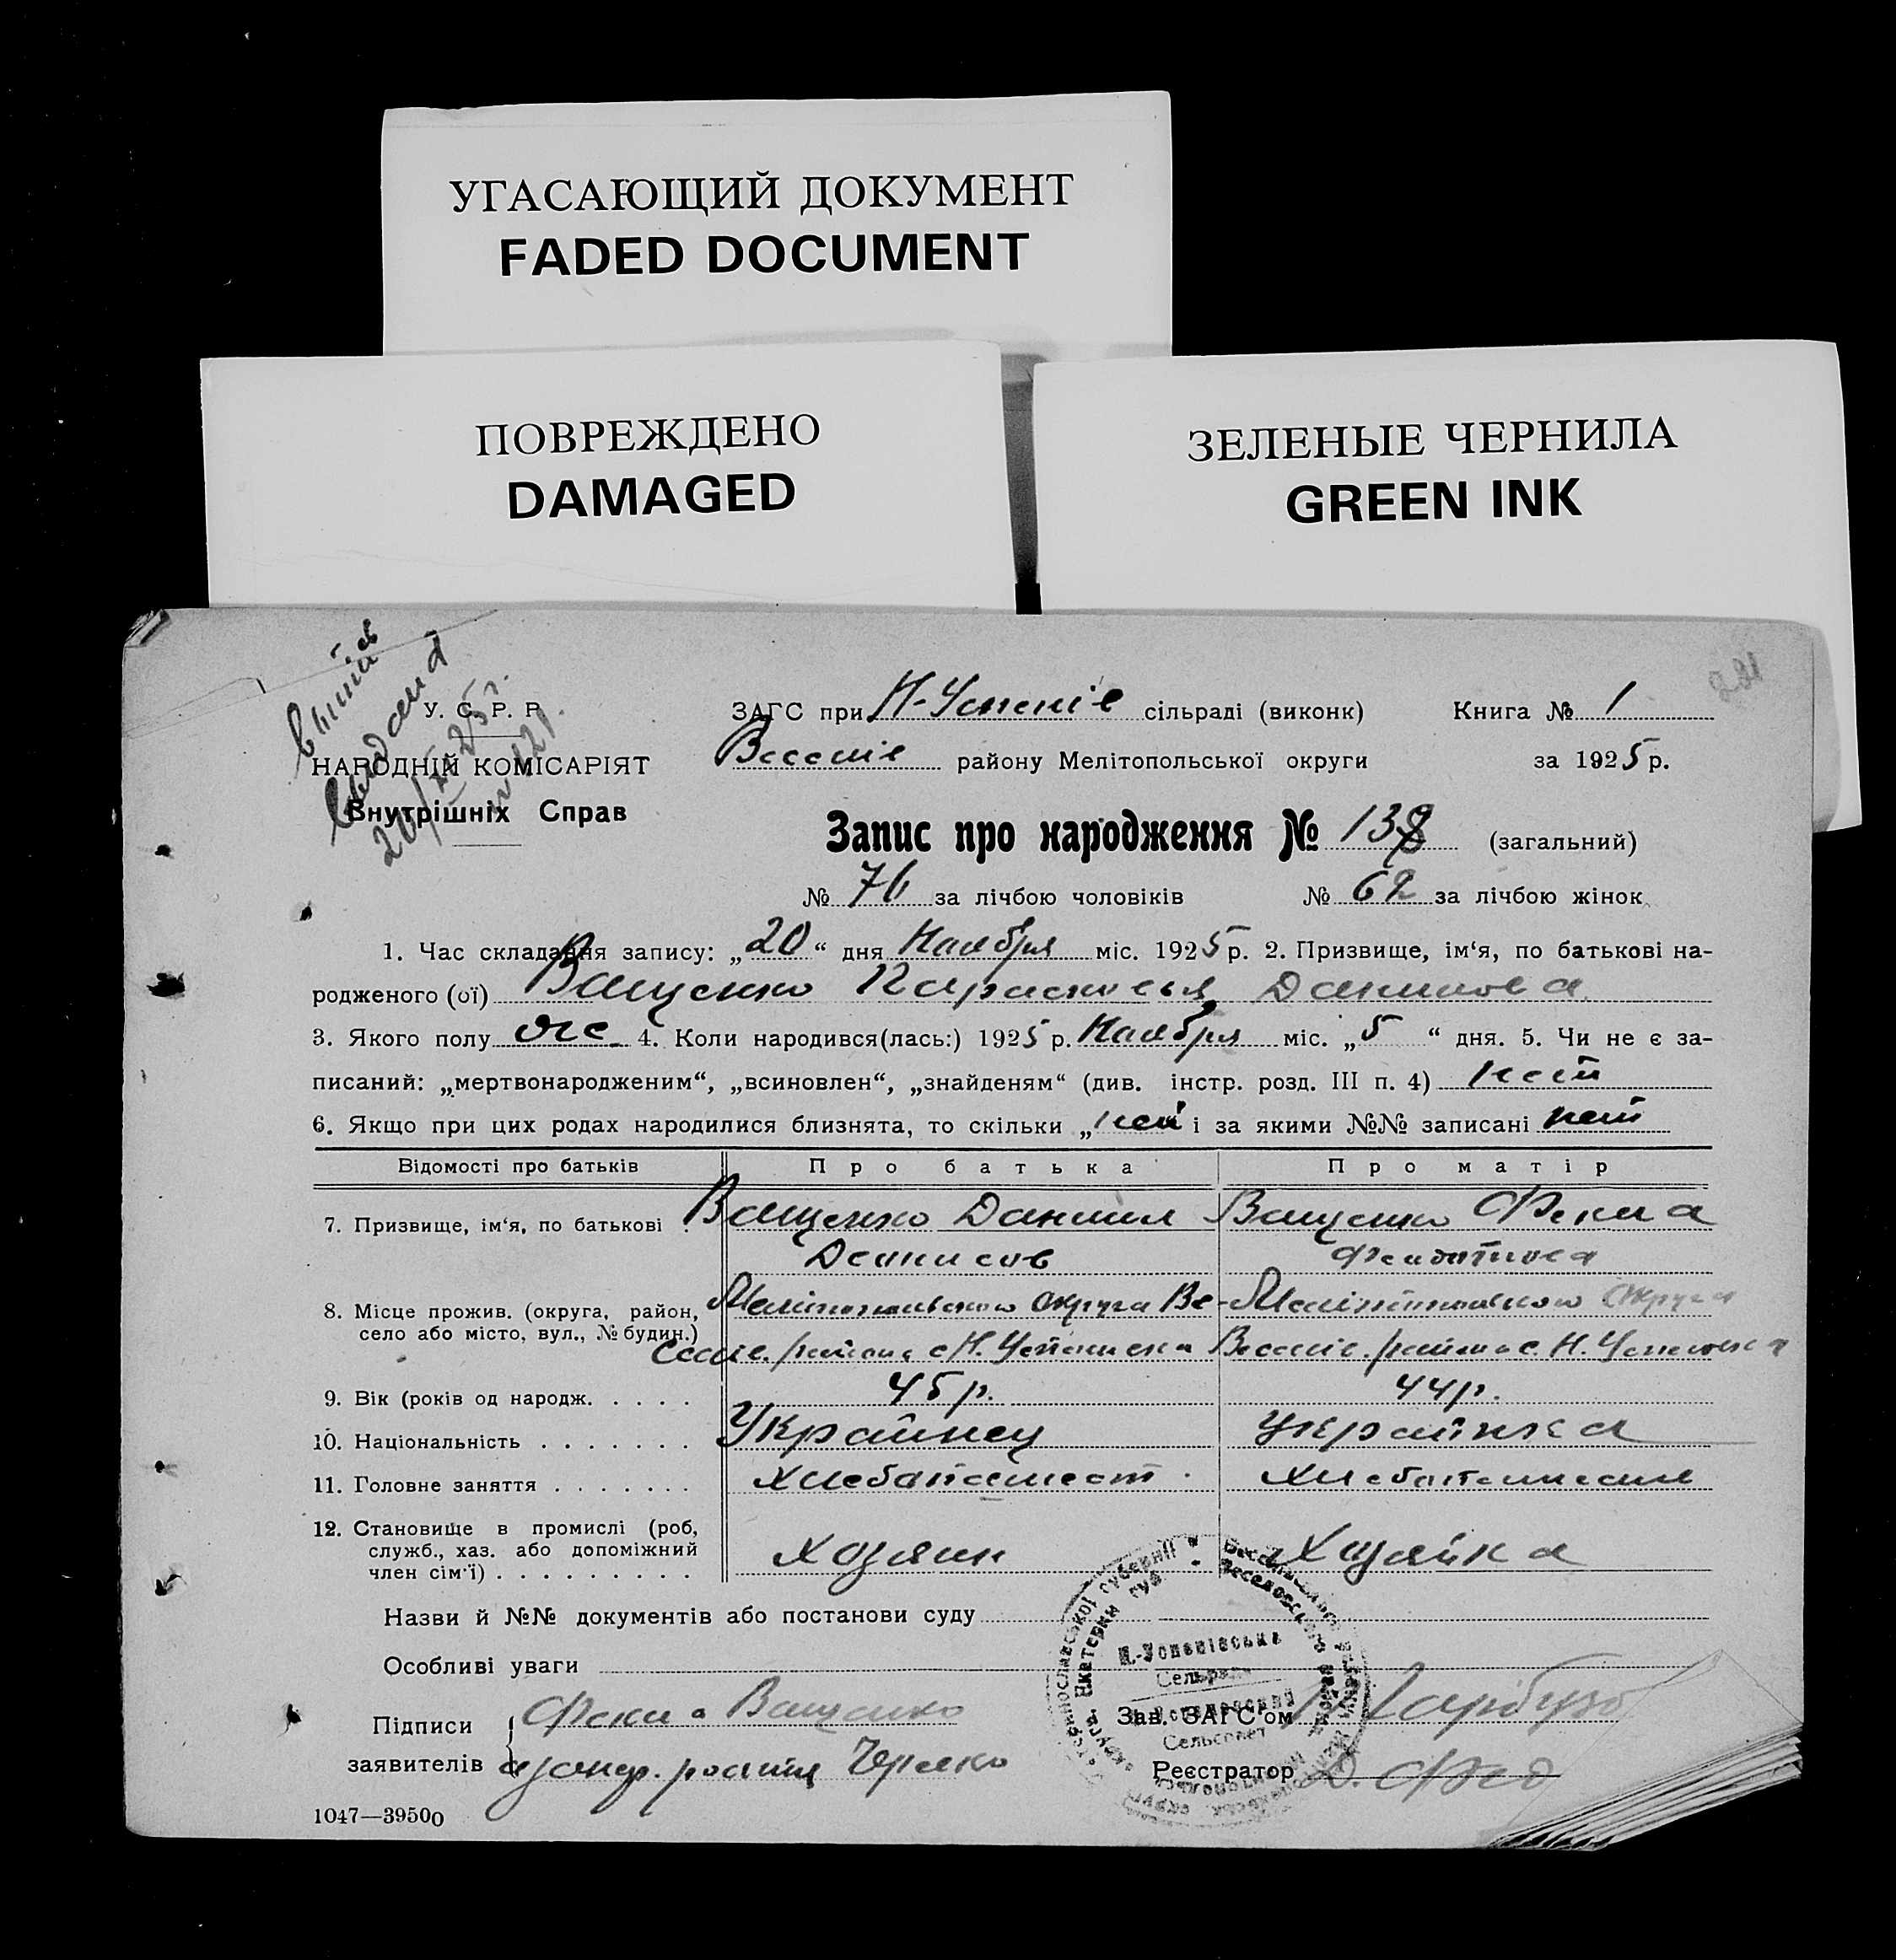 УГАСАЮЩИЙ ДОКУМЕНТ
FADED DOCUMENT
ПОВРЕЖДЕНО
DAMAGED
ЗЕЛЕНЫЕ ЧЕРНИЛА
GREEN INK
У. С. Р. Р.
НАРОДНІЙ КОМІСАРІЯТ
Внутрішніх Справ
ЗАГС при Н-Успенів сільраді (виконк) Книга № 1
Веселів району Мелітопольської округи за 1925 р.
Запис про народження № 138 (загальний)
№ 76 за лічбою чоловіків № 62 за лічбою жінок
1. Час складання запису: „20“ дня Ноября міс. 1925 р. 2. Призвище, ім‘я, по батькові на-
родженого (ої) Ващенко Парасковья Данилова
3. Якого полу же 4. Коли народився(лась:) 1925 р. Ноября міс. „5“ дня. 5. Чи не є за-
писаний: „мертвонародженим“, „всиновлен“, „знайденям“ (див. інстр. розд. III п. 4) нет
6. Якщо при цих родах народилися близнята, то скільки „нет“ і за якими №№ записані нет
Відомості про батьків Про батька Про матір
7. Призвище, ім‘я, по батькові Ващенко Даниил Ващенко Фекла
Денисов
8. Місце прожив. (округа, район, Мелітопольского Округа Ве- Мелітопольского Округа
село або місто, вул., № будин.) селів. района с Н. Успеновка Веселів. района с. Н. Успеновка
9. Вік (років од народж. 45 р. 44 р.
10. Національність Украинец Украінка
11. Головне заняття Хлебопашест Хлебопашест
12. Становище в промислі (роб, служб., хаз. або допоміжний член сім‘ї) Хозяин Хозяйка
Назви й №№ документів або постанови суду
Особливі уваги
Н.-Успенівська
Сельрада
Сельсовет
Підписи Фекла Ващенко Зав. ЗАГС‘ом
заявителів Реєстратор Д.
1047—39500